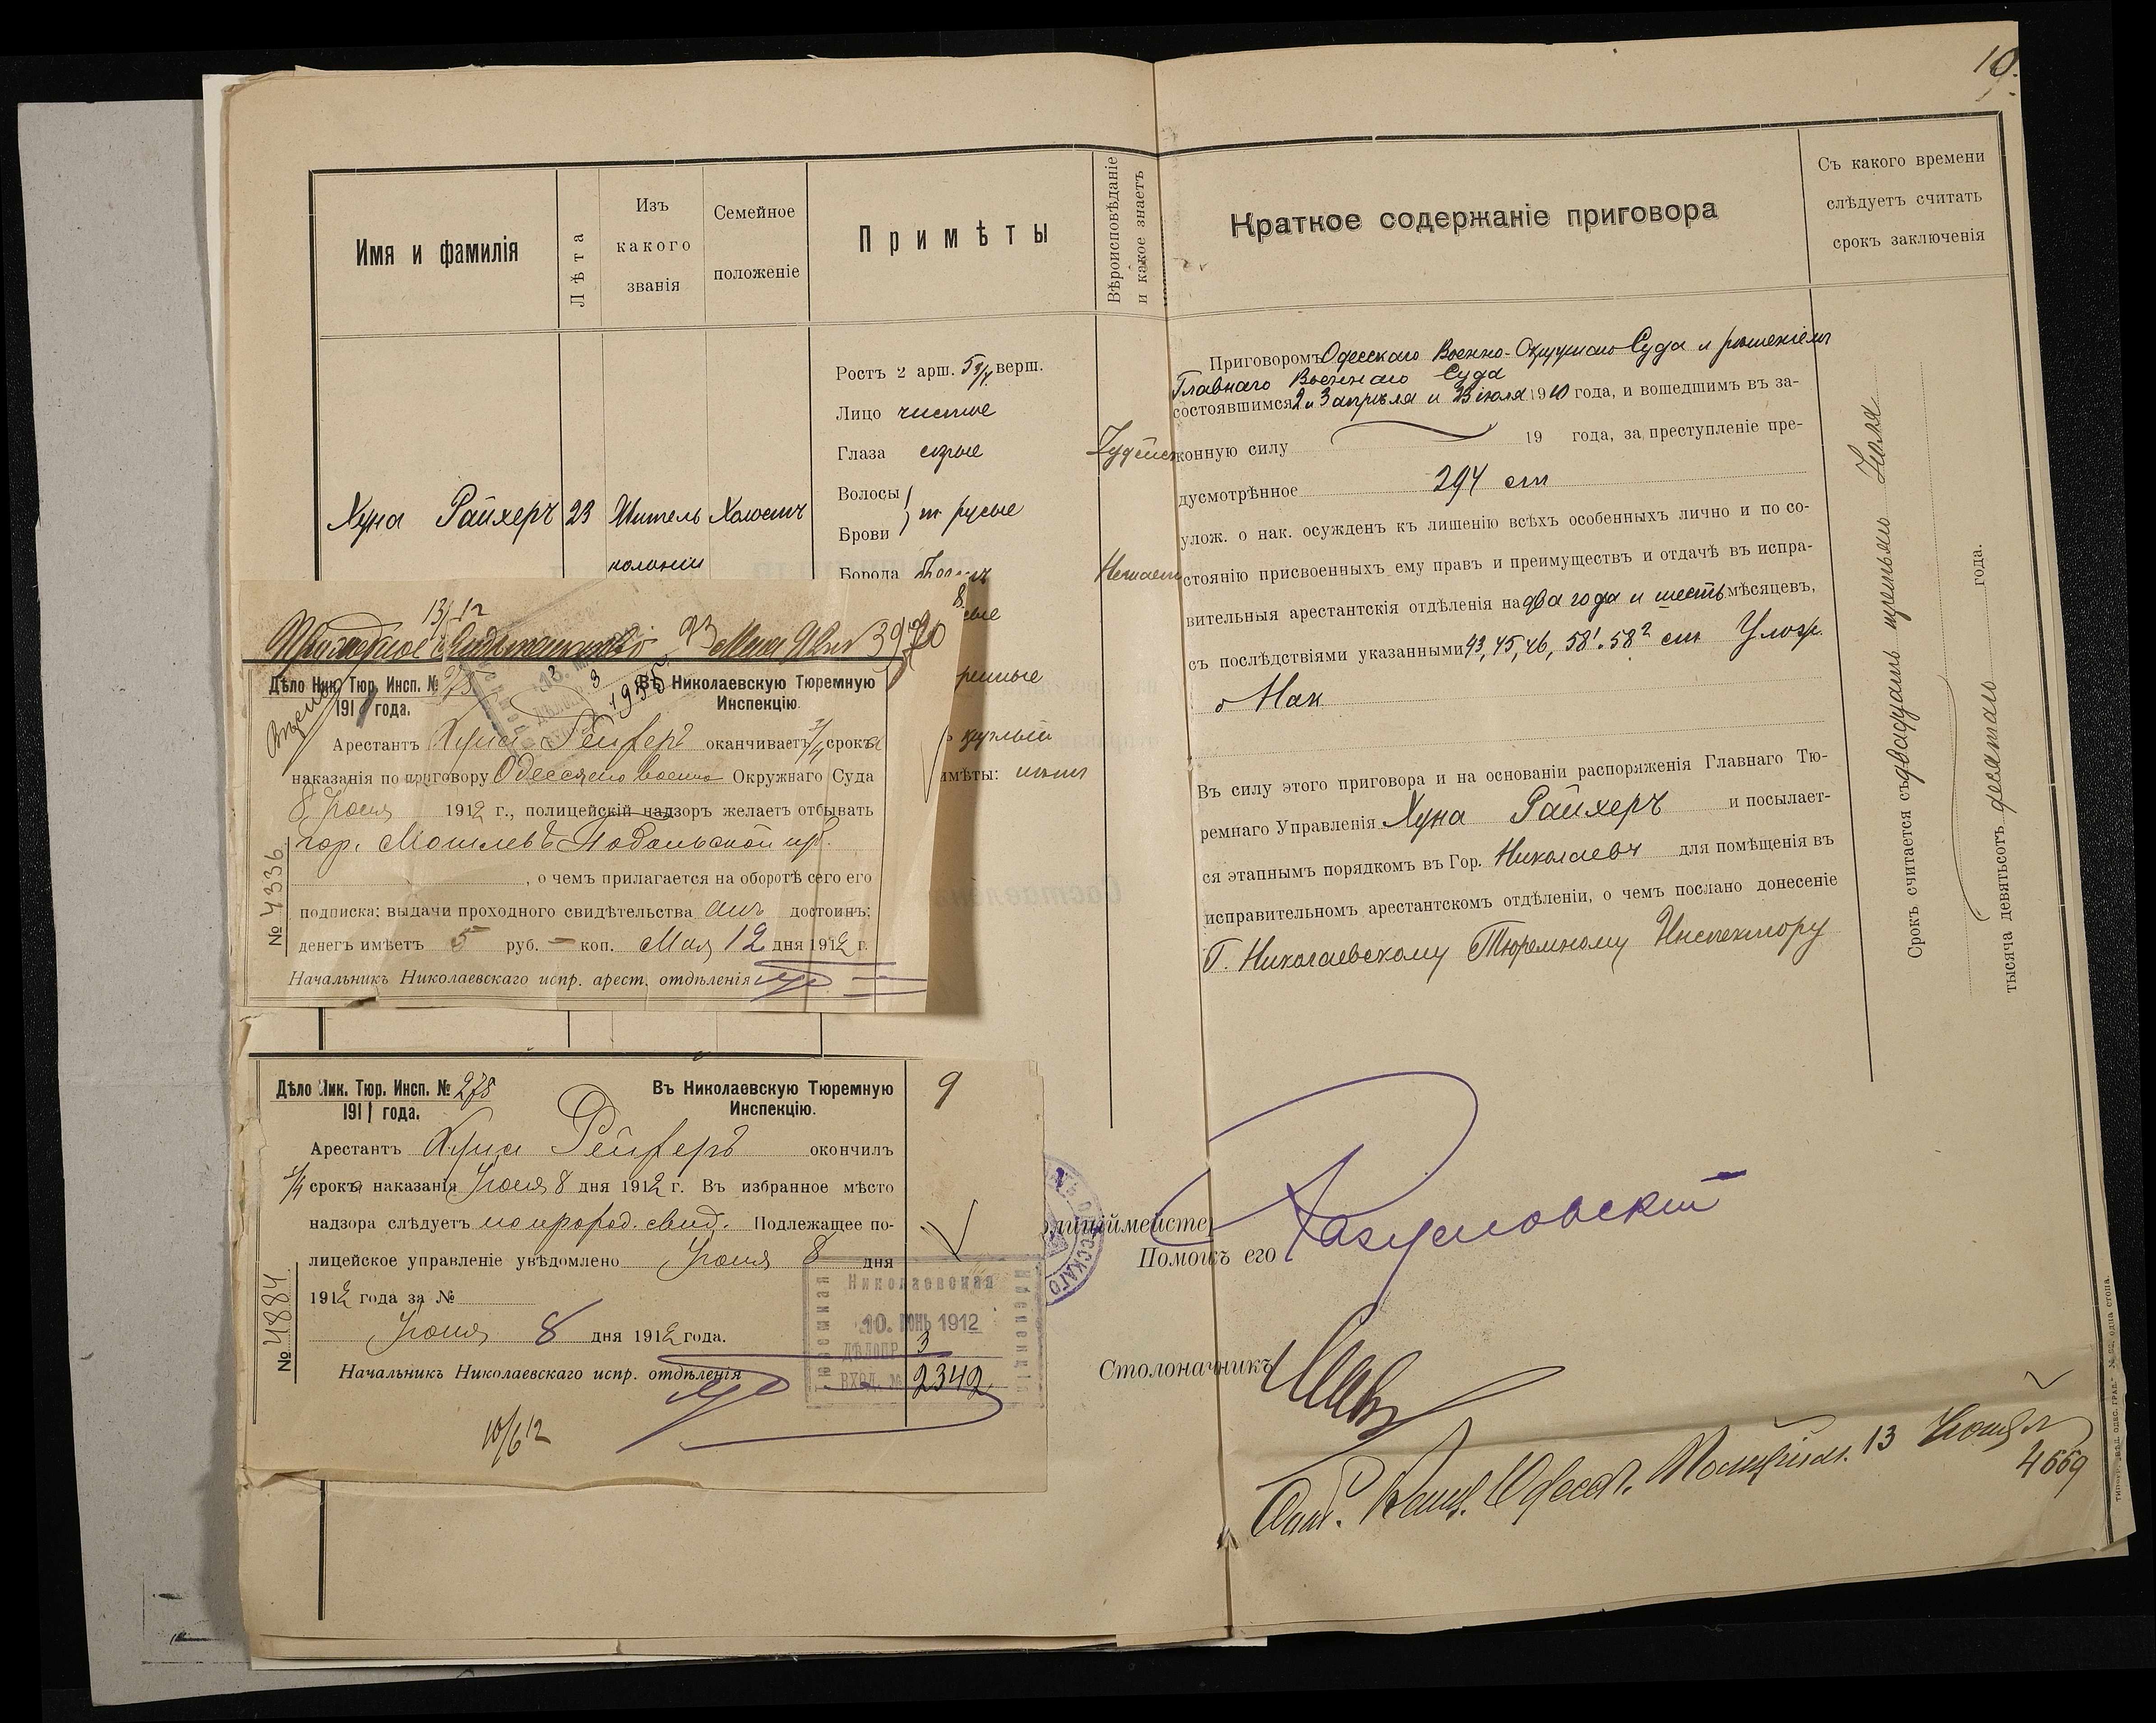 10.
Имя и фамилія
Лѣта
Изъ
какого
званія
Семейное
положеніе
Примѣты
Вѣроисповѣданіе
и какое знаетъ
Хуна Райхеръ
23
Житель
колоніи
Холостъ
Ростъ 2 арш. 5 3/4 верш.
Лицо чистое
Глаза сѣрые
Волосы
Брови
т. русые
Борода
круглый
имѣты:
Іудейск
Краткое содержаніе приговора
Съ какого времени
слѣдуетъ считать
срокъ заключенія
Приговоромъ Одесскаго Военно-Окружнаго Суда и рѣшеніемъ
Главнаго Военнаго Суда
состоявшимся 2 и 3 апрѣля и 23 іюля 1910 года, и вошедшимъ въ за-
конную силу 19 года, за преступленіе пре-
дусмотрѣнное 294 ст
улож. о нак. осужденъ къ лишенію всѣхъ особенныхъ лично и по со-
стоянію присвоенныхъ ему правъ и преимуществъ и отдачѣ въ испра-
вительныя арестантскія отдѣленія на два года и шесть мѣсяцевъ,
съ послѣдствіями указанными 43, 45, 46, 58¹. 58² ст Улож.
о Нак
Въ силу этого приговора и на основаніи распоряженія Главнаго Тю-
ремнаго Управленія Хуна Райхеръ и посылает-
ся этапнымъ порядкомъ въ Гор. Николаевъ для помѣщенія въ
исправительномъ арестантскомъ отдѣленіи, о чемъ послано донесеніе
Г. Николаевскому Тюремному Инспектору
Срокъ считается съ двадцать третьяго Іюля
тысяча девятьсотъ десятаго года.
13/5 12
Дѣло Ник. Тюр. Инсп. № 278
1911 года.
Въ Николаевскую Тюремную
Инспекцію.
3
1955
Арестантъ Хуна Рейхеръ оканчиваетъ 3/4 срока
наказанія по приговору Одесскаго военно Окружнаго Суда
8 Іюня 1912 г., полицейскій надзоръ желаетъ отбывать
гор. Могилевъ Подольской губ.
, о чемъ прилагается на оборотѣ сего его
подписка; выдачи проходного свидѣтельства онъ достоинъ;
денегъ имѣетъ 5 руб. – коп. Мая 12 дня 1912 г.
Начальникъ Николаевскаго испр. арест. отдѣленія
№ 4336
8
Дѣло Ник. Тюр. Инсп. № 278
1911 года.
Въ Николаевскую Тюремную
Инспекцію.
9
Арестантъ Хуна Рейхеръ окончилъ
3/4 срока наказанія Іюня 8 дня 1912 г. Въ избранное мѣсто
надзора слѣдуетъ по проход. свид. Подлежащее по-
лицейское управленіе увѣдомлено Іюня 8 дня
1912 года за №
Іюня 8 дня 1912 года.
Начальникъ Николаевскаго испр. отдѣленія
№ 4884
Николаевская
Тюремная
Инспекція
10. ІЮНЬ 1912
ДѢЛОПР. 3
ВХОД. № 2342
10/6 12
олиціймейсте
Помощъ его
Столоначникъ
13
4669